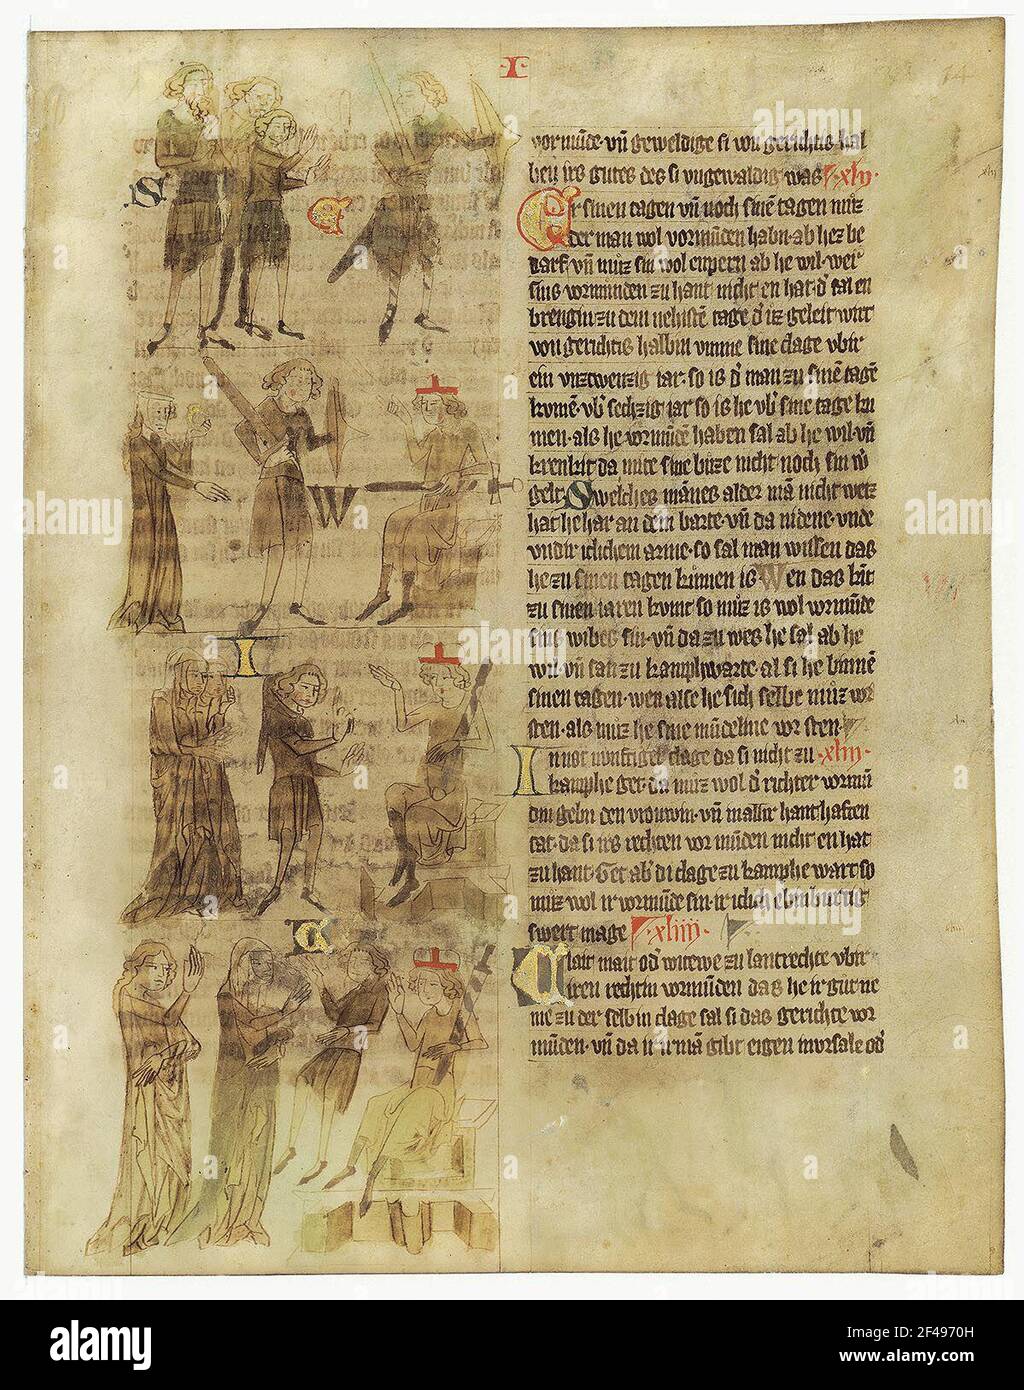 ·I·
14
vormu̅de· vn̅ geweldige si von gerichtis hal
ben irs gutes des si vngewaldig was xlij·
Er sinen tagen vn̅ noch sine̅ tagen muz
der man wol vormu̅den habn· ab her be
darf· vn̅ muz sin wol enpern ab he wil· wer
sins vormunden zu hant nicht en hat d̕ sal en
brengin zu dem nehiste̅ tage d̕ iz geleit wirt
von gerichtis halbin vmme sine clage vbir
ein vnzwenzig iar· so is d̕ man zu sine̅ tage̅
kome̅· vb̕ sechzig iar so is he vb̕ sine tage ku
men· als he vormu̅de haben sal ab he wil· vn̅
krenkit da mite sine buze nicht noch sin w̕
gelt· Swelches ma̅nes alder ma̅ nicht weiz
hat he har an dem barte· vn̅ da nidene· vnde
vndir iclichem arme· so sal man wissen das
he zu sinen tagen kumen is Wen das kint
zu sinen iaren kvmt so muz is wol vormu̅de
sins wibes sin· vn̅ da zu wes he sal ab he
wil· vn̅ satz zu kamphwarte· al si he binne̅
sinen tagen· wen alse he sich selbe muz vor
sten· als muz he sine mu̅deline vor sten
In not nunftiger clage da si nicht zu xliij·
kamphe get· da muz wol d̕ richter vormu̅
din gebn den vrouwin· vn̅ mallir hanthaften
tat· da si irs rechten vor mu̅den nicht en hat
zu hant· Get ab̕ di clage zu kamphe wart so
muz wol ir vormu̅de sin· ir iclich ebinburtig
swert mage xliiij·
Clait mait od̕ witewe zu lantrechte vbir
iren rechtin vormu̅den das he ir gut ne
me zu der selbin clage sal si das gerichte vor
mu̅den· vn̅ da ir ir ma̅ gibt eigen mursale od̕
S
E
W
I
C
alamy
a
alamy
Image ID: 2F4970H
www.alamy.com